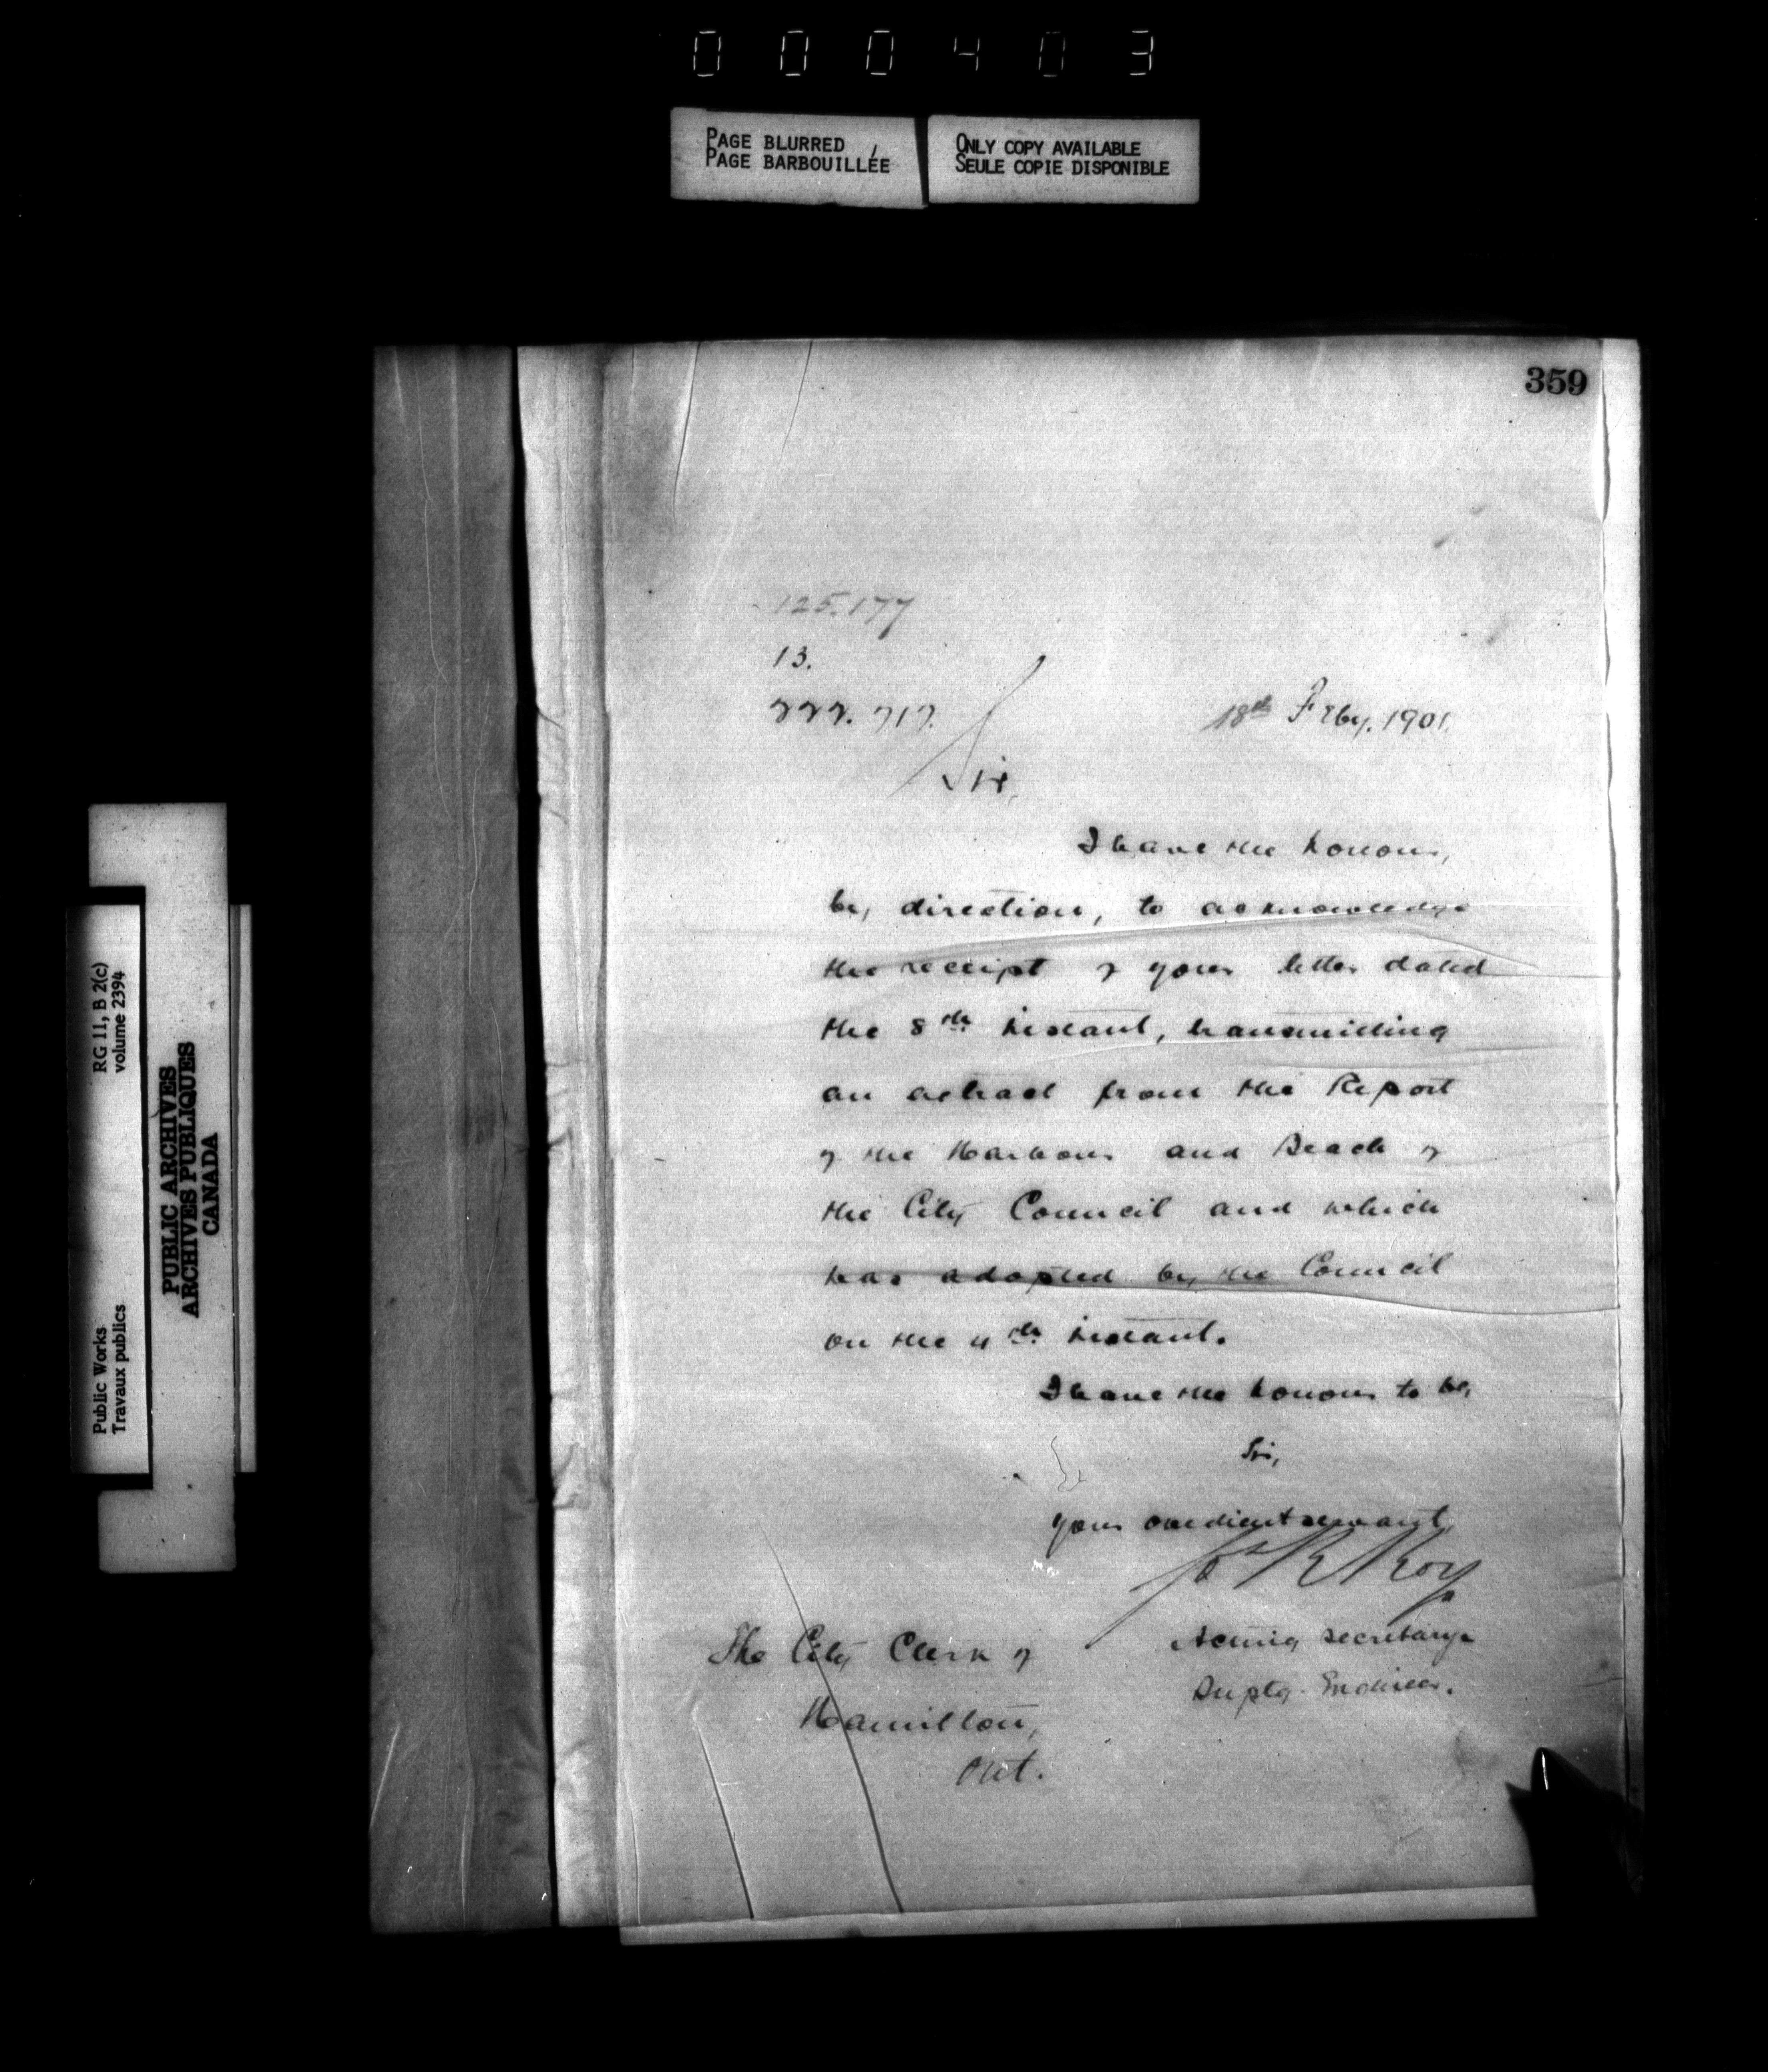 000403
PAGE BLURRED
PAGE BARBOUILLÉE
ONLY COPY AVAILABLE
SEULE COPIE DISPONIBLE
359
125.177
13.
18th Feby. 1901.
Sir,
I have the honour,
by direction, to acknowledge
the receipt of your letter dated
the 8th instant, transmitting
an extract from the Report
of the Harbour and Beach of
the City Council and which
was adopted by the Council
on the 4th instant.
I have the honour to be,
Sir,
your obedient servant,
R Roy
Acting Secretary &
Dupty. Engineer.
The City Clerk of
Hamilton,
Ont.
Public Works
Travaux publics
RG 11, B 2(c)
volume 2394
PUBLIC ARCHIVES
ARCHIVES PUBLIQUES
CANADA